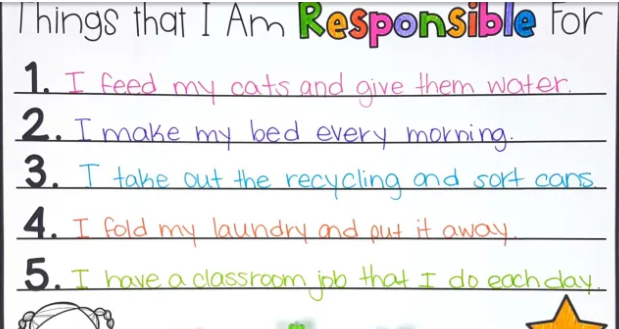 Things that I Am Responsible For
1. I feed my cats and give them water.
2. I make my bed every morning.
3. I take out the recycling and sort cans.
4. I fold my laundry and put it away.
5. I have a classroom job that I do each day.